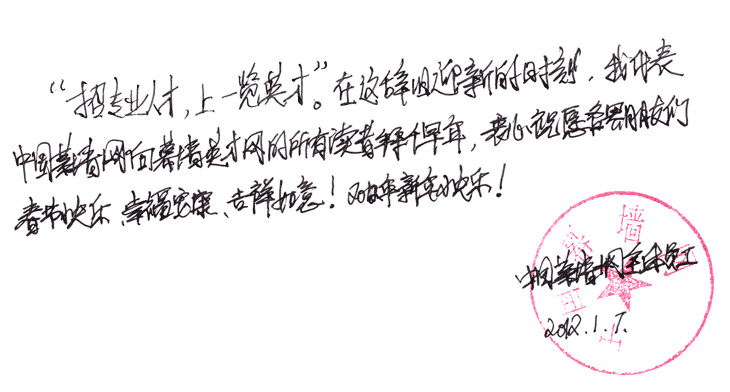 “招专业人才，上一览英才”。在这辞旧迎新的时刻，我代表
中国幕墙网向幕墙英才网的所有读者拜个早年，衷心祝愿各界朋友们
春节快乐、幸福安康、吉祥如意！2012年新年快乐！
中国幕墙网全体员工
2012.1.7.